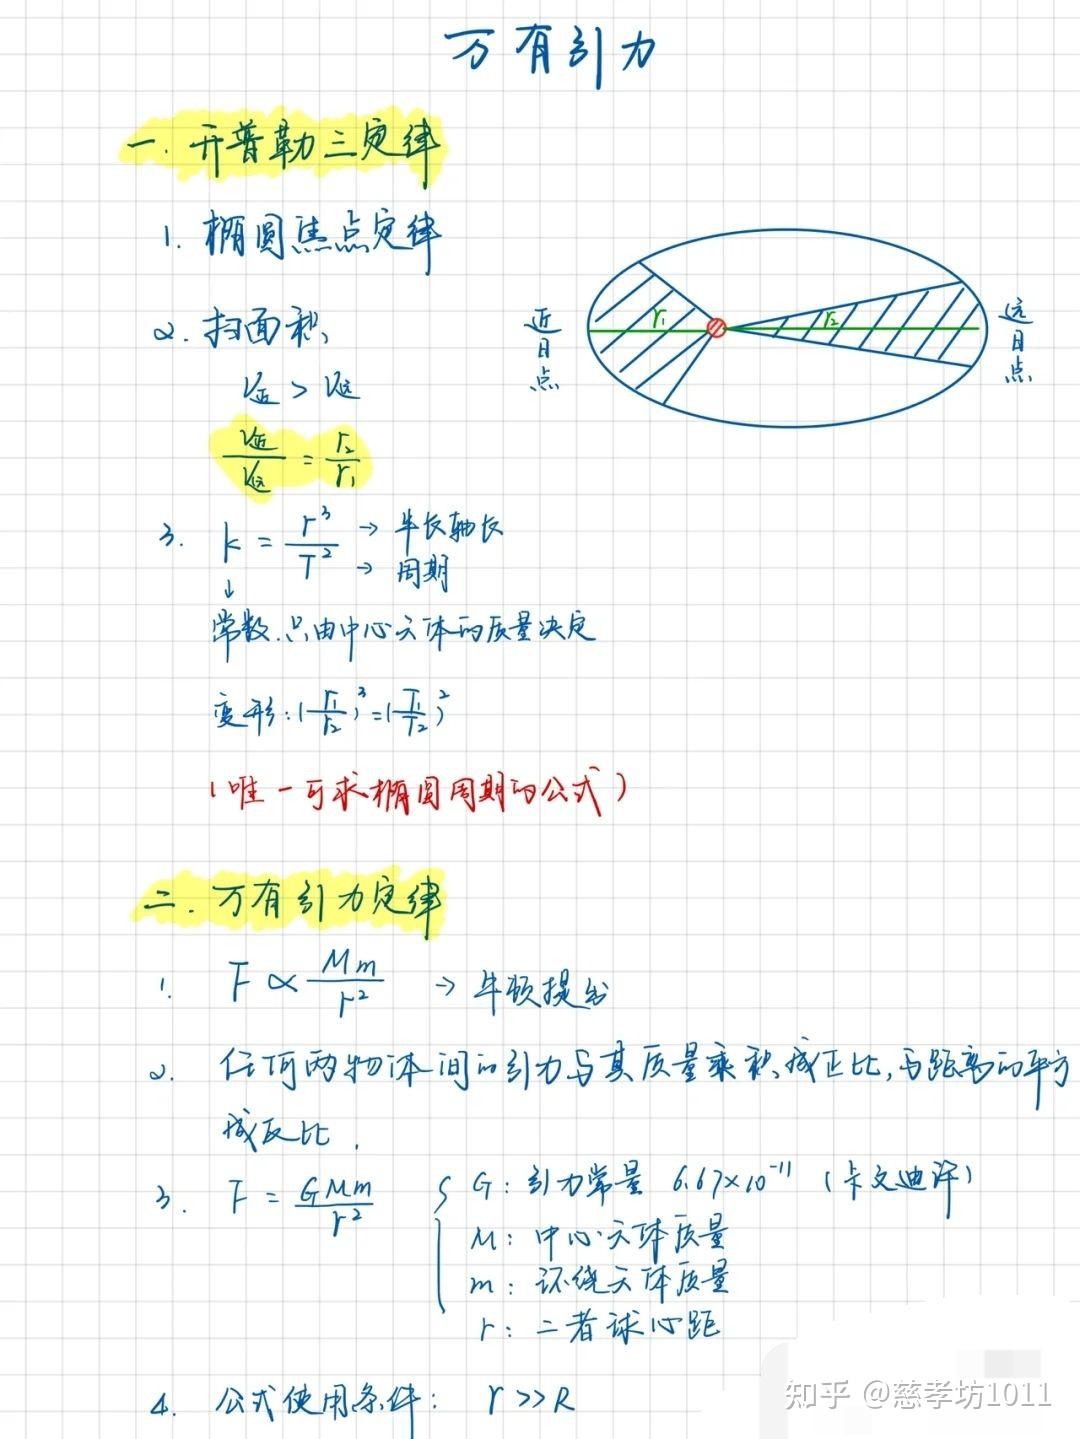 万有引力
一. 开普勒三定律
1. 椭圆焦点定律
近日点
r₁
r₂
远日点
2. 扫面积
V近 > V远
V近/V远 = r₂/r₁
3. k = r³/T² → 半长轴长
→ 周期
↓
常数.只由中心天体的质量决定
变形:(r₁/r₂)³=(T₁/T₂)²
(唯一可求椭圆周期的公式)
二. 万有引力定律
1. F ∝ Mm/r² → 牛顿提出
2. 任何两物体间的引力与其质量乘积成正比,与距离的平方
成反比.
3. F = GMm/r² { G: 引力常量 6.67×10⁻¹¹ (卡文迪许)
M: 中心天体质量
m: 环绕天体质量
r: 二者球心距
4. 公式使用条件: r>>R
知乎 @慈孝坊1011